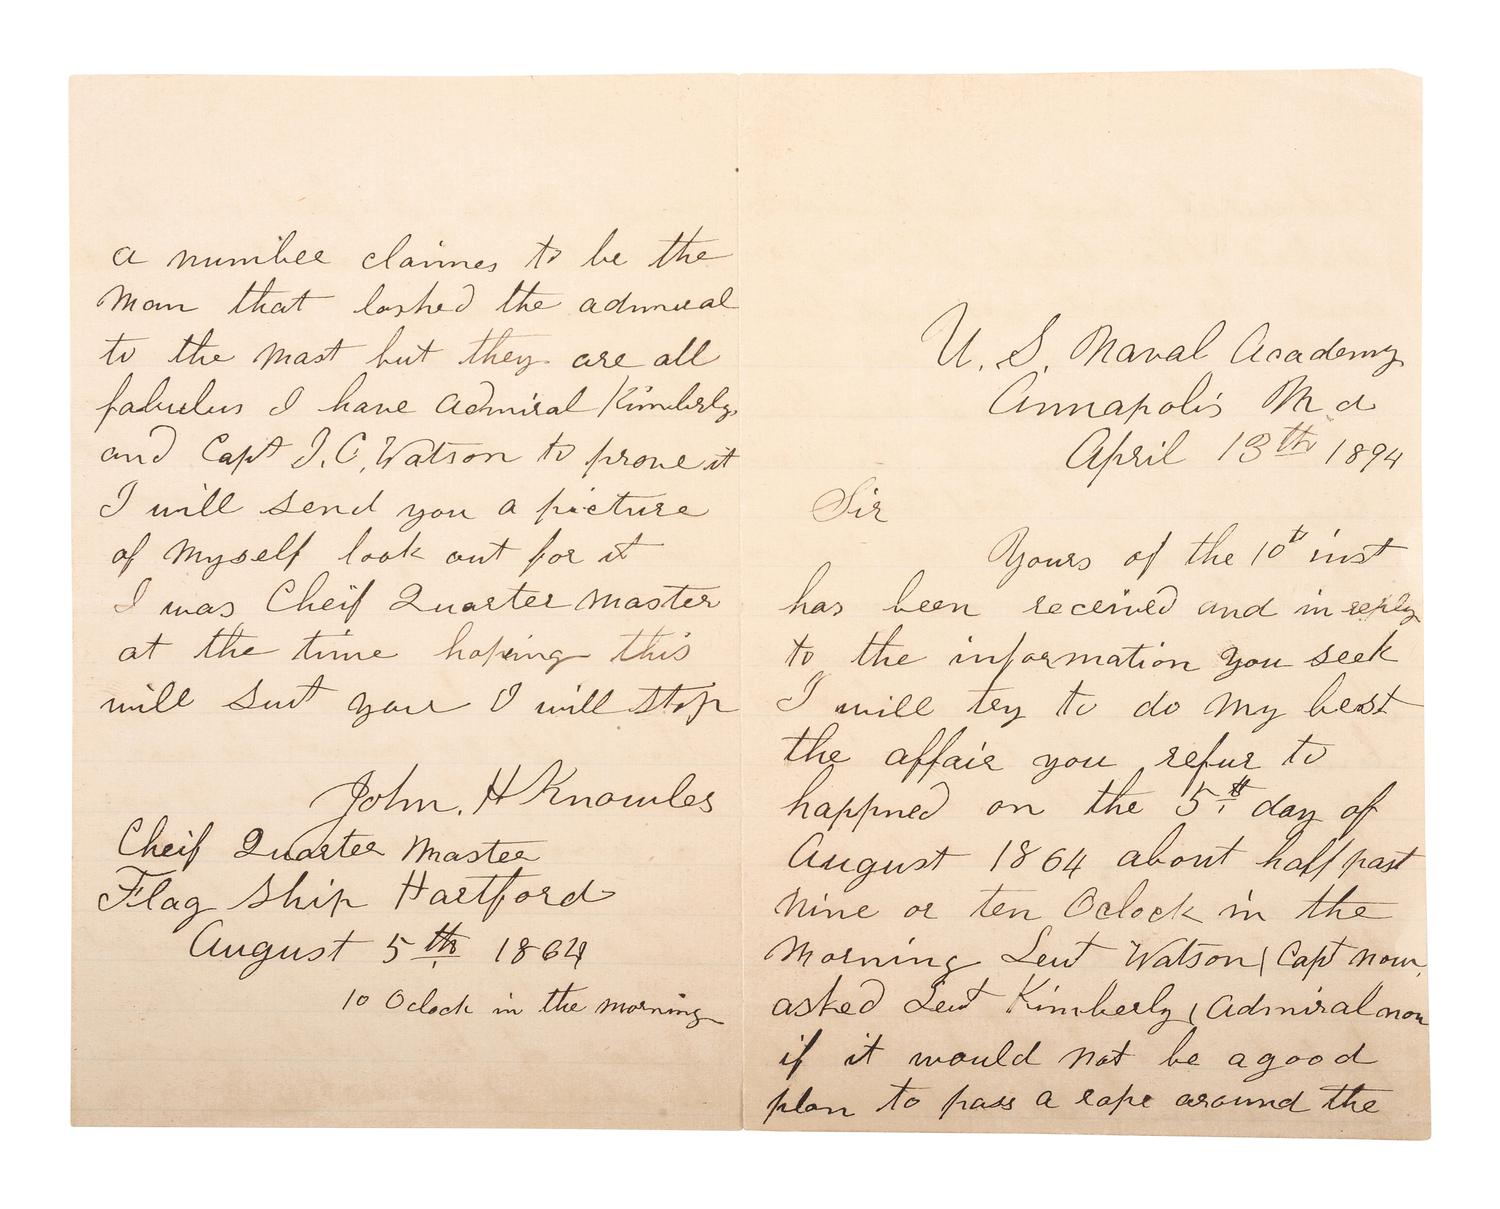 U. S. Naval Academy
Annapolis Md
April 13th 1894
Sir
Yours of the 10th inst
has been received and in reply
to the information you seek
I will try to do my best
the affair you refur to
happned on the 5th day of
August 1864 about half past
nine or ten Oclock in the
morning Leut Watson (Capt now,
asked Leut Kimberly (Admiral now
if it would not be a good
plan to pass a rope around the
a numbee claimes to be the
man that lashed the admiral
to the mast but they are all
fabulus I have Admiral Kimberly
and Capt J. C. Watson to prove it
I will send you a picture
of myself look out for it
I was Cheif Quarter master
at the time hoping this
will suit your I will stop
John. H Knowles
Cheif Quarter Master
Flag Ship Hartford
August 5th 1864
10 Oclock in the morning